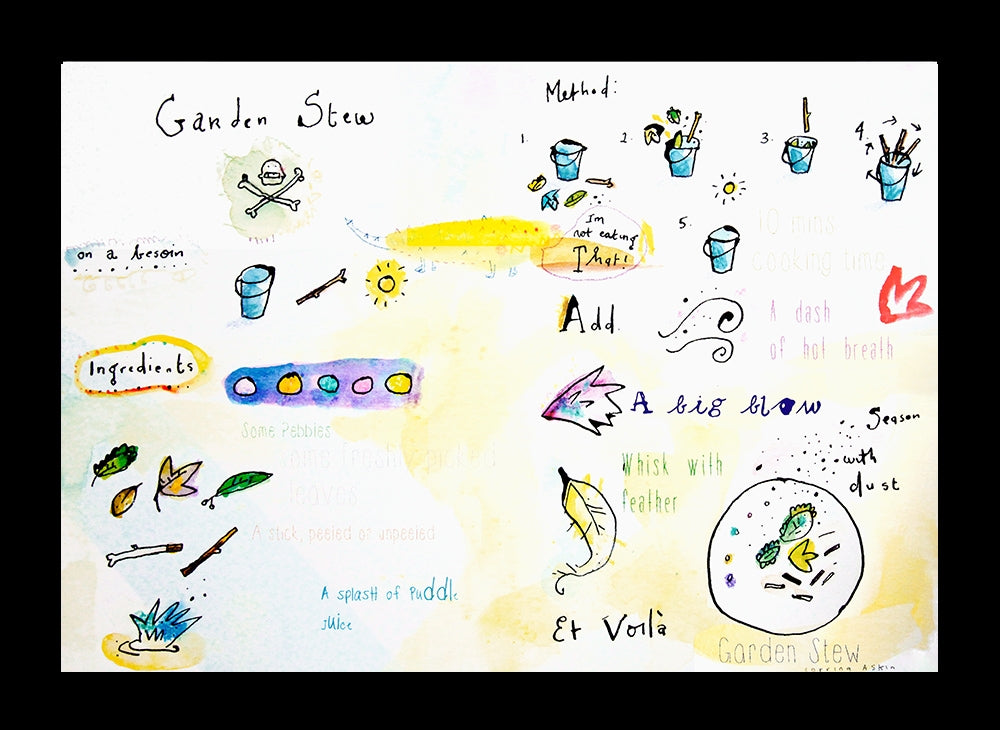 Garden Stew
on a besoin
Ingredients
Some Pebbles
some freshly picked
leaves
A stick, peeled or unpeeled
A splash of puddle
juice
Method:
1.
2.
3.
4.
I'm
not eating
That!
5.
10 mins
cooking time
Add
A dash
of hot breath
A big blow
Season
with
dust
Whisk with
feather
Et Voilà
Garden Stew
corrina Askin